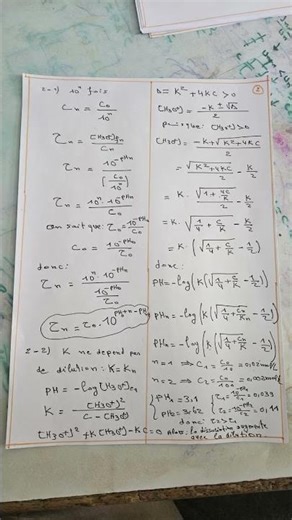 2-1) 10ⁿ fois
Cn = C0/10ⁿ
τn = [H3O+]n/Cn
τn = 10^-pHn/[C0/10ⁿ]
τn = 10ⁿ.10^-pHn/C0
On sait que: τ0 = 10^-pH0/C0
C0 = 10^-pH0/τ0
donc:
τn = 10ⁿ.10^-pHn/(10^-pH0/τ0)
τn = τ0.10^
2-2) K ne depend pas
de dilution: K = Kn
PH = -log[H3O+]
K = [H3O+]²/(C - [H3O+])
[H3O+]² + K[H3O+] - KC = 0
2
Δ = K² + 4KC > 0
[H3O+] = (-K ± √Δ)/2
[H3O+] > 0
[H3O+] = (-K + √K² + 4KC)/2
= √K² + 4KC/2 - K/2
= K. √1 + 4C/K/2 - K/2
= K. √1/4 + C/K - K/2
= K. (√1/4 + C/K - 1/2)
donc:
PH = -log(K(√1/4 + C/K - 1/2))
PHn = -log(K(√1/4 + Cn/K - 1/2))
PHn = -log(K(√1/4 + C/K - 1/2))
n = 1 ⇒ C1 = C0/10 =
n = 2 ⇒ C2 =
PH1 = 3,1
PH2 = 3,62
τ1 = = 0,039
τ2 = = 0,11
donc: τ2 > τ1
Alors: la dissociation augmente
avec la dilution.